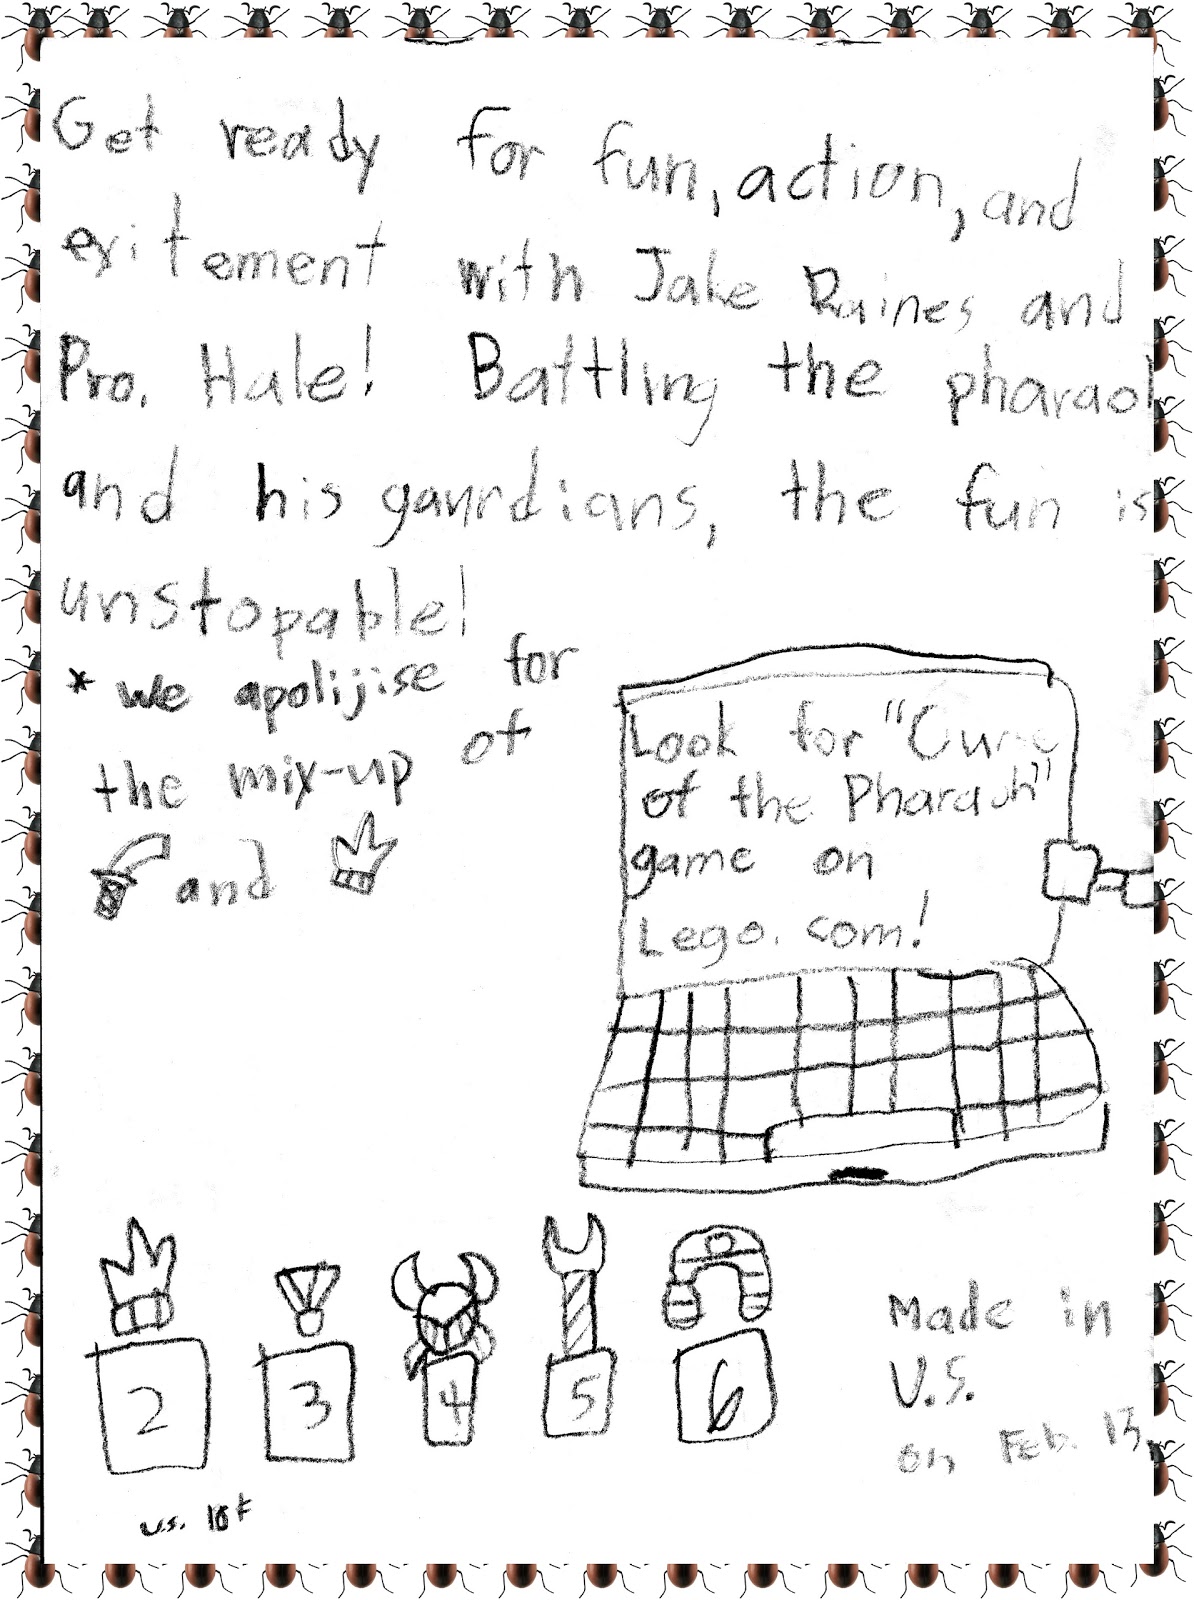 Get ready for fun, action, and
exitement with Jake Raines and
Pro. Hale! Battling the pharaoh
and his gaurdians, the fun is
unstopable!
* we apolijise for
the mix-up of
and
Look for "Curse
of the Pharaoh"
game on
Lego.com!
2 3 4 5 6
Made in
U.S.
on Feb. 13,
u.s.